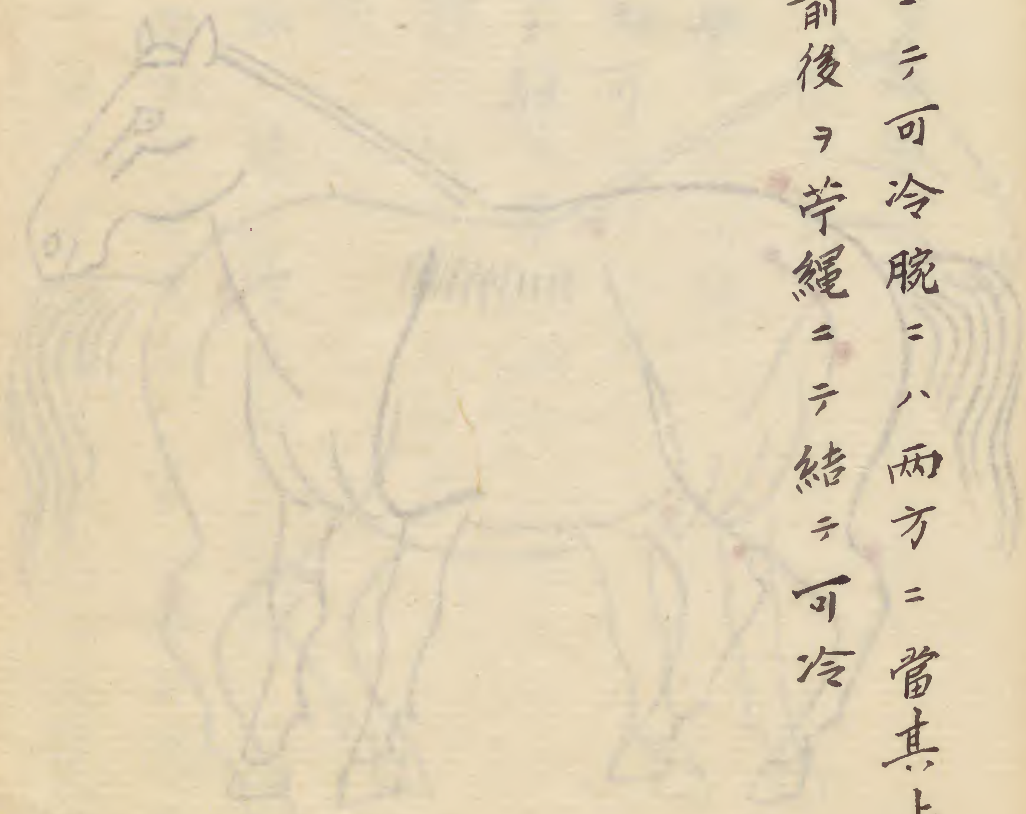 ニテ可冷腕ニハ两方ニ當其上
前後ヲ苧縄ニテ結テ可冷